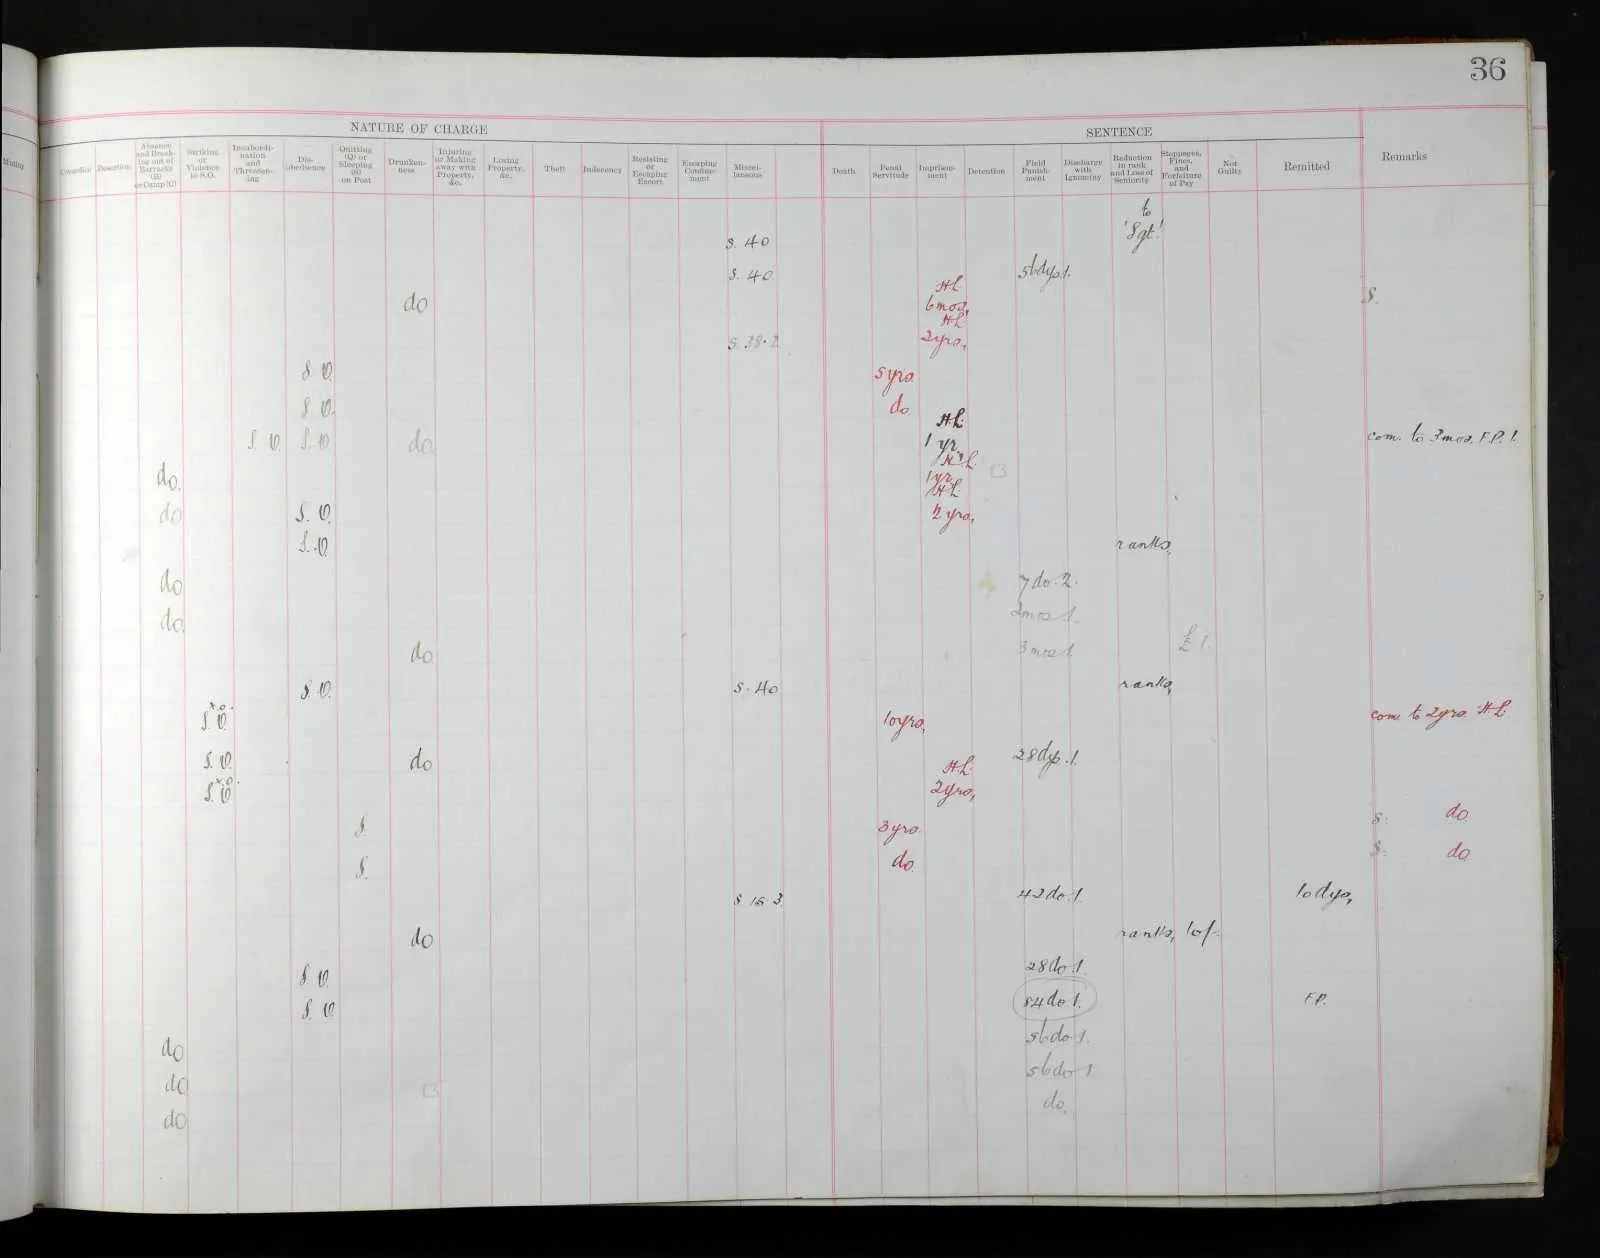 36
NATURE OF CHARGE
SENTENCE
Mutiny
Cowardice
Desertion
Absence and Break-ing out of Barracks (B) or Camp (C)
Striking or Violence to S.O.
Insubordi-nation and Threaten-ing
Dis-obedience
Quitting (Q) or Sleeping (S) on Post
Drunken-ness
Injuring or Making away with Property, &c.
Losing Property, &c.
Theft
Indecency
Resisting or Escaping Escort
Escaping Confine-ment
Miscel-laneous
Death
Penal Servitude
Imprison-ment
Detention
Field Punish-ment
Discharge with Ignominy
Reduction in rank and Loss of Seniority
Stoppages, Fines, and Forfeiture of Pay
Not Guilty
Remitted
Remarks
to
S. 40 'Sgt.'
S. 40 56 dys. 1.
H.L.
do 6 mos, S.
H.L.
S. 38.2 2 yrs,
S. O. 5 yrs.
S O. do.
H.L.
S. O. S. O. do 1 yr, com. to 3 mos. F.P. 1.
H.L.
do. 1 yr
H L
do S. O. 2 yrs,
S. O. ranks,
do 7 do. 2.
do. 2 mos 1.
do 3 mos 1 £1.
S. O. S. 40 ranks,
S. O. 10 yrs, com. to 2 yrs. H.L.
S. O. do 28 dys. 1.
H.L.
S. O. 2 yrs,
S. 3 yrs. S. do.
S. do. S. do
S 15 3 42 do. 1. 10 dys,
do ranks, 10/-
S. O. 28 do. 1.
S. O. 84 do 1. F.P.
do 56 do 1.
do 56 do 1
do do.